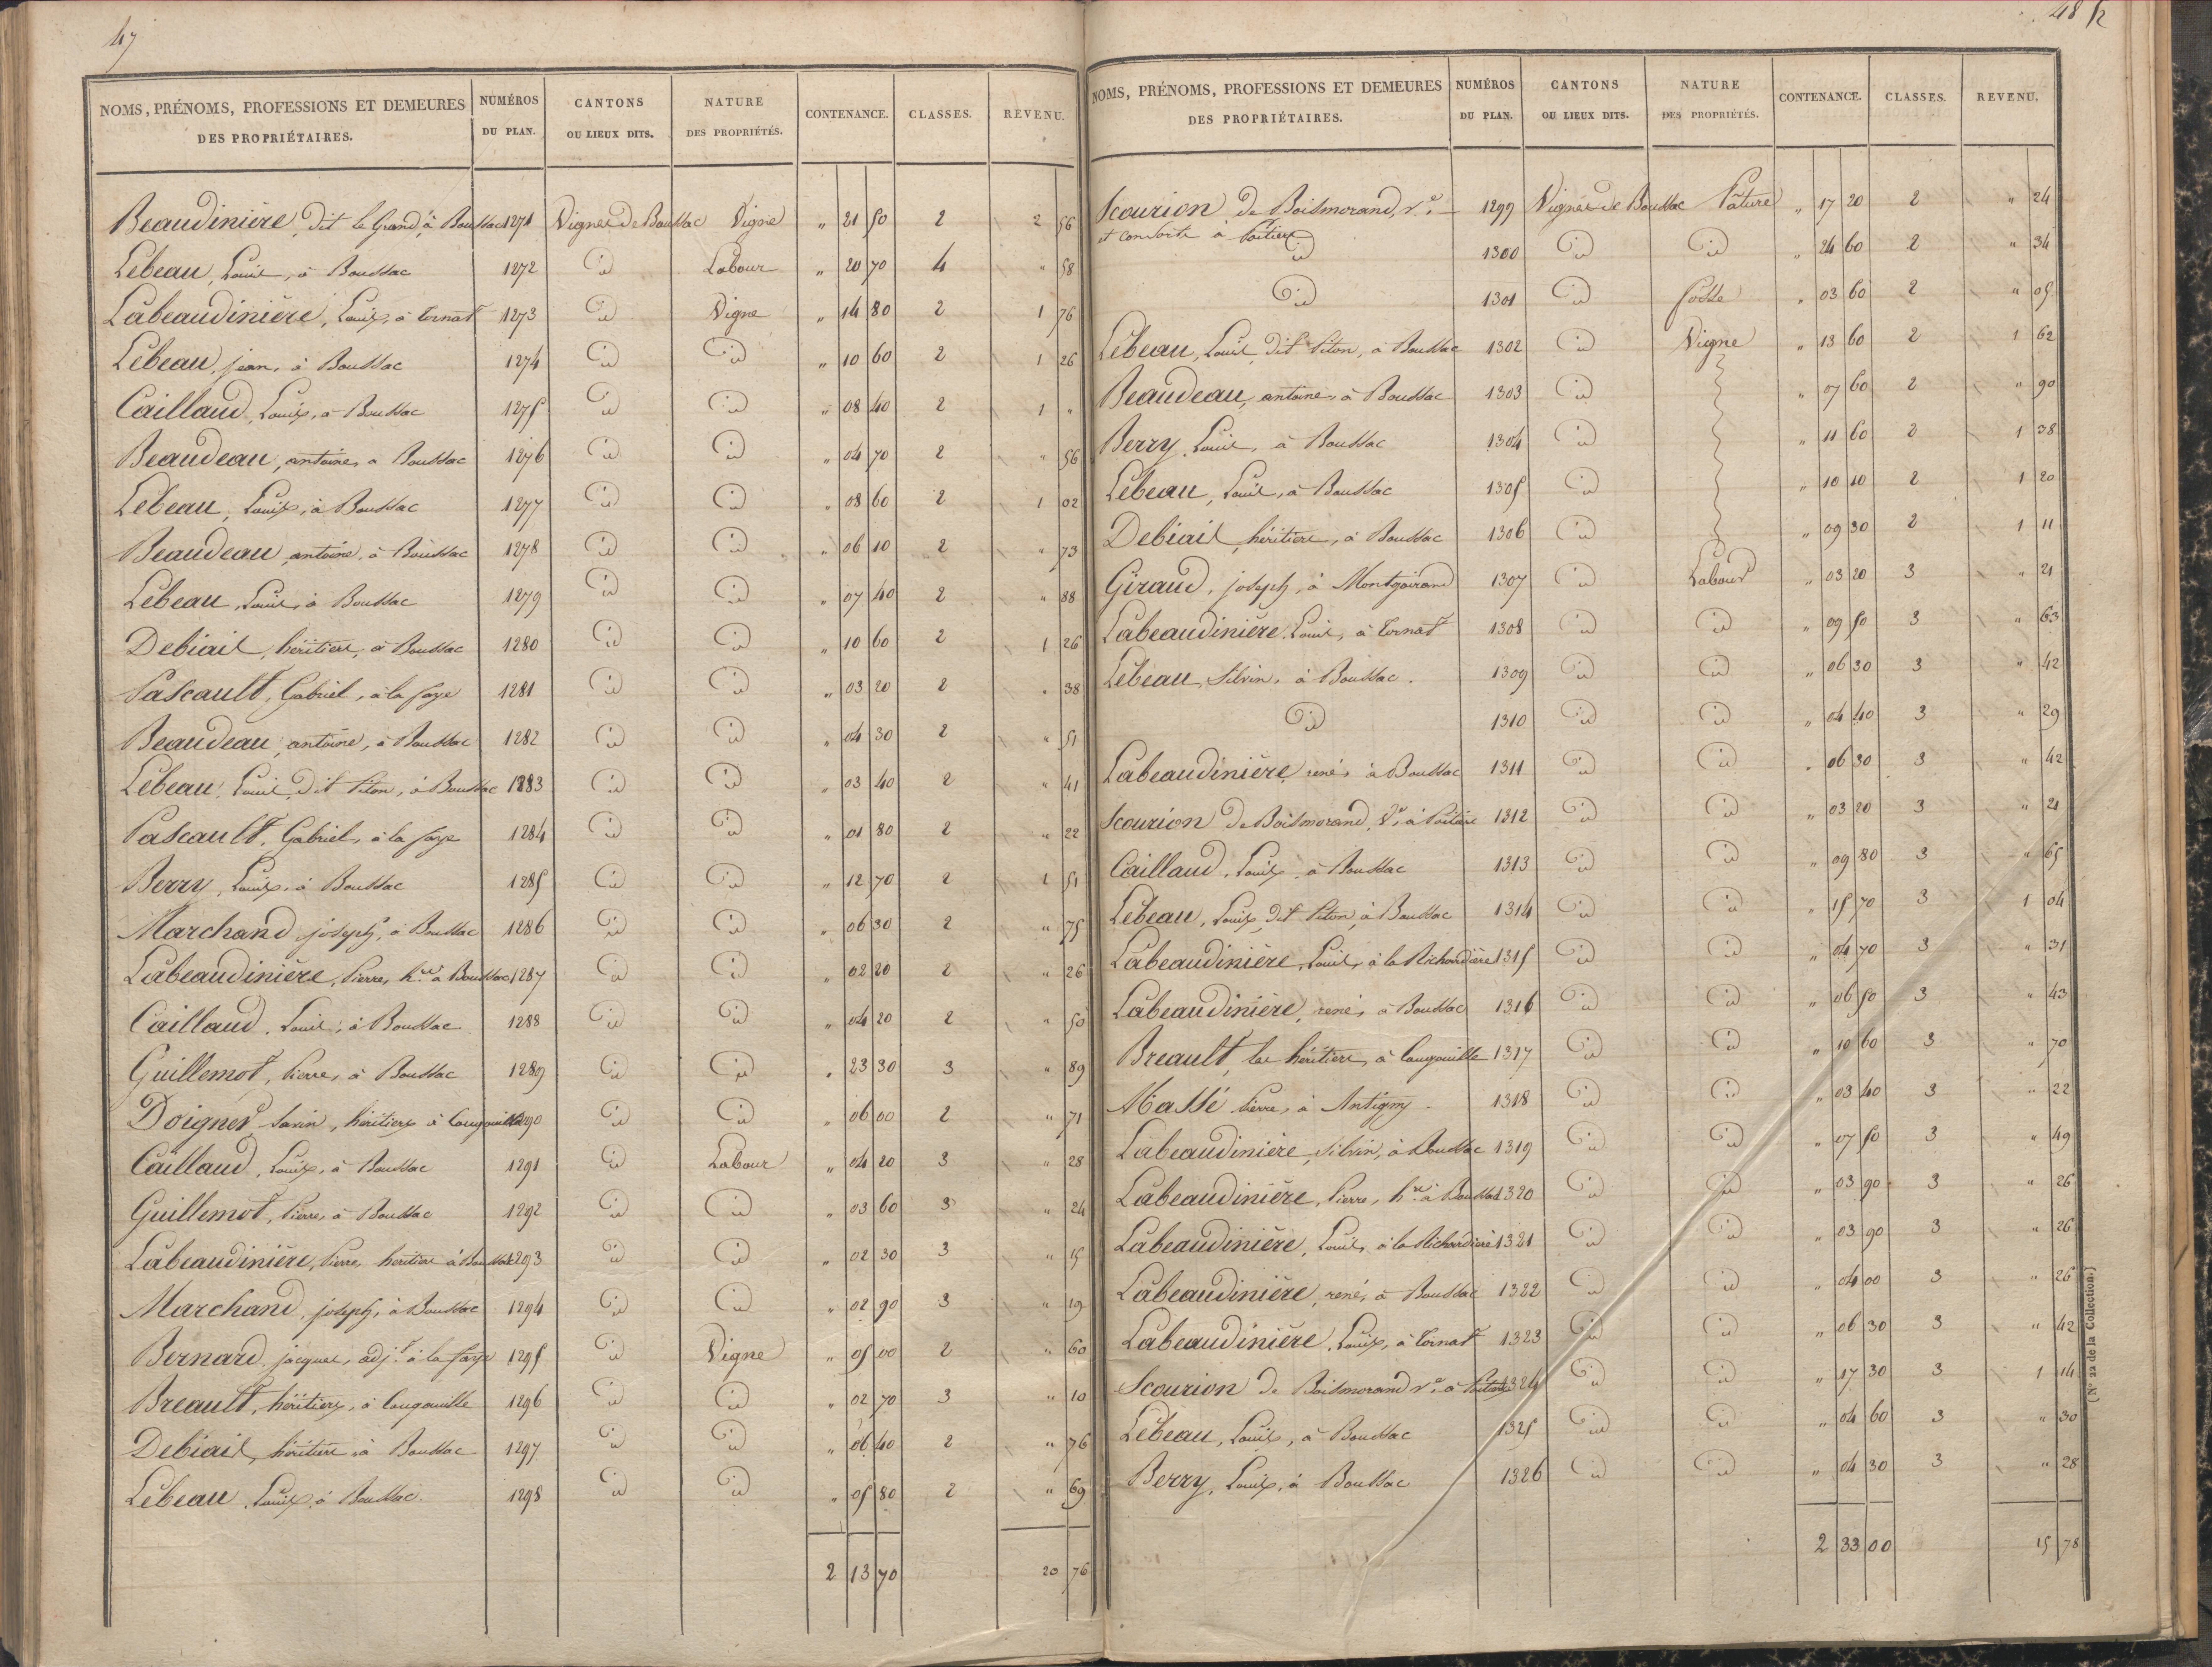 47
NOMS, PRÉNOMS, PROFESSIONS ET DEMEURES DES PROPRIÉTAIRES. NUMÉROS DU PLAN. CANTONS OU LIEUX DITS. NATURE DES PROPRIÉTÉS. CONTENANCE. CLASSES. REVENU.
Beaudinière, dit le Grand, à Boussac 1271 Vignes de Boussac Vigne " 21 50 2 2 56
Lebeau, Louis, à Boussac 1272 id Labour " 20 70 4 " 58
Labeaudinière, Louis, à Tornat 1273 id Vigne " 14 80 2 1 76
Lebeau, jean, à Boussac 1274 id id " 10 60 2 1 26
Caillaud, Louis, à Boussac 1275 id id " 08 40 2 1 "
Beaudeau, antoine, à Boussac 1276 id id " 04 70 2 " 56
Lebeau, Louis, à Boussac 1277 id id " 08 60 2 1 02
Beaudeau, antoine, à Boussac 1278 id id " 06 10 2 " 73
Lebeau, Louis, à Boussac 1279 id id " 07 40 2 " 88
Debiail, héritiers, à Boussac 1280 id id " 10 60 2 1 26
Pascault, Gabriel, à la faye 1281 id id " 03 20 2 " 38
Beaudeau, antoine, à Boussac 1282 id id " 04 30 2 " 51
Lebeau, Louis, dit Piton, à Boussac 1283 id id " 03 40 2 " 41
Pascault, Gabriel, à la faye 1284 id id " 01 80 2 " 22
Berry, Louis, à Boussac 1285 id id " 12 70 2 1 51
Marchand, joseph, à Boussac 1286 id id " 06 30 2 " 75
Labeaudinière, Pierre, h.rs à Boussac 1287 id id " 02 20 2 " 26
Caillaud, Louis, à Boussac 1288 id id " 04 20 2 " 50
Guillemot, Pierre, à Boussac 1289 id id " 23 30 3 " 89
Doignet, Savin, héritiers à Cougouille 1290 id id " 06 00 2 " 71
Caillaud, Louis, à Boussac 1291 id Labour " 04 20 3 " 28
Guillemot, Pierre, à Boussac 1292 id id " 03 60 3 " 24
Labeaudinière, Pierre, heritiers à Boussac 1293 id id " 02 30 3 " 15
Marchand, joseph, à Boussac 1294 id id " 02 90 3 " 19
Bernard, jacques, adj.t à la faye 1295 id Vigne " 05 00 2 " 60
Breault, héritiers, à Cougouille 1296 id id " 02 70 3 " 10
Debiail, héritiers, à Boussac 1297 id id " 06 40 2 " 76
Lebeau, Louis, à Boussac 1298 id id " 05 80 2 " 69
2 13 70 20 76
48
NOMS, PRÉNOMS, PROFESSIONS ET DEMEURES DES PROPRIÉTAIRES. NUMÉROS DU PLAN. CANTONS OU LIEUX DITS. NATURE DES PROPRIÉTÉS. CONTENANCE. CLASSES. REVENU.
Scourion de Boismorand, v.e 1299 Vignes de Boussac Pature " 17 20 2 " 24
et consorts à Poitiers
id 1300 id id " 24 60 2 " 34
id 1301 id fosse " 03 60 2 " 05
Lebeau, Louis, dit Piton, à Boussac 1302 id Vigne " 13 60 2 1 62
Beaudeau, antoine, à Boussac 1303 id " 07 60 2 " 90
Berry, Louis, à Boussac 1304 id " 11 60 2 1 38
Lebeau, Louis, à Boussac 1305 id " 10 10 2 1 20
Debiail, héritiers, à Boussac 1306 id " 09 30 2 1 11
Giraud, joseph, à Montgoirand 1307 id Labour " 03 20 3 " 21
Labeaudinière, Louis, à Tornat 1308 id id " 09 50 3 " 63
Lebeau, Silvin, à Boussac. 1309 id id " 06 30 3 " 42
id 1310 id id " 04 40 3 " 29
Labeaudinière, rené, à Boussac 1311 id id " 06 30 3 " 42
Scourion de Boismorand, V.e à Poitiers 1312 id id " 03 20 3 " 21
Caillaud, Louis, à Boussac 1313 id id " 09 80 3 " 65
Lebeau, Louis, dit Piton, à Boussac 1314 id id " 15 70 3 1 04
Labeaudinière, Louis, à la Richardière 1315 id id " 04 70 3 " 31
Labeaudinière, rené, à Boussac 1316 id id " 06 50 3 " 43
Breault, les héritiers, à Cougouille 1317 id id " 10 60 3 " 70
Massé Pierre, à Antigny. 1318 id id " 03 40 3 " 22
Labeaudinière, Silvin, à Boussac 1319 id id " 07 50 3 " 49
Labeaudinière, Pierre, h.rs à Boussac 1320 id id " 03 90 3 " 26
Labeaudinière, Louis, à la Richardière 1321 id id " 03 90 3 " 26
Labeaudinière, rené, à Boussac 1322 id id " 04 00 3 " 26
Labeaudinière, Louis, à Tornat 1323 id id " 06 30 3 " 42
Scourion de Boismorand v.e à Poitiers 1324 id id " 17 30 3 1 14
Lebeau, Louis, à Boussac 1325 id id " 04 60 3 " 30
Berry, Louis, à Boussac 1326 id id " 04 30 3 " 28
2 33 00 15 78
(N° 22 de la Collection.)